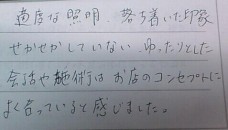 適度な照明、落ち着いた印象
せかせかしていない、ゆったりとした
会話や施術は お店のコンセプトに
よく合っていると感じました。